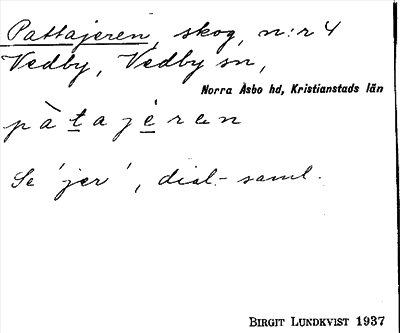 Pattajeren, skog, n:r 4
Vedby, Vedby sn,
Norra Åsbo hd, Kristianstads län
pàtajèren
Se 'jer', dial.-saml.
BIRGIT LUNDKVIST 1937